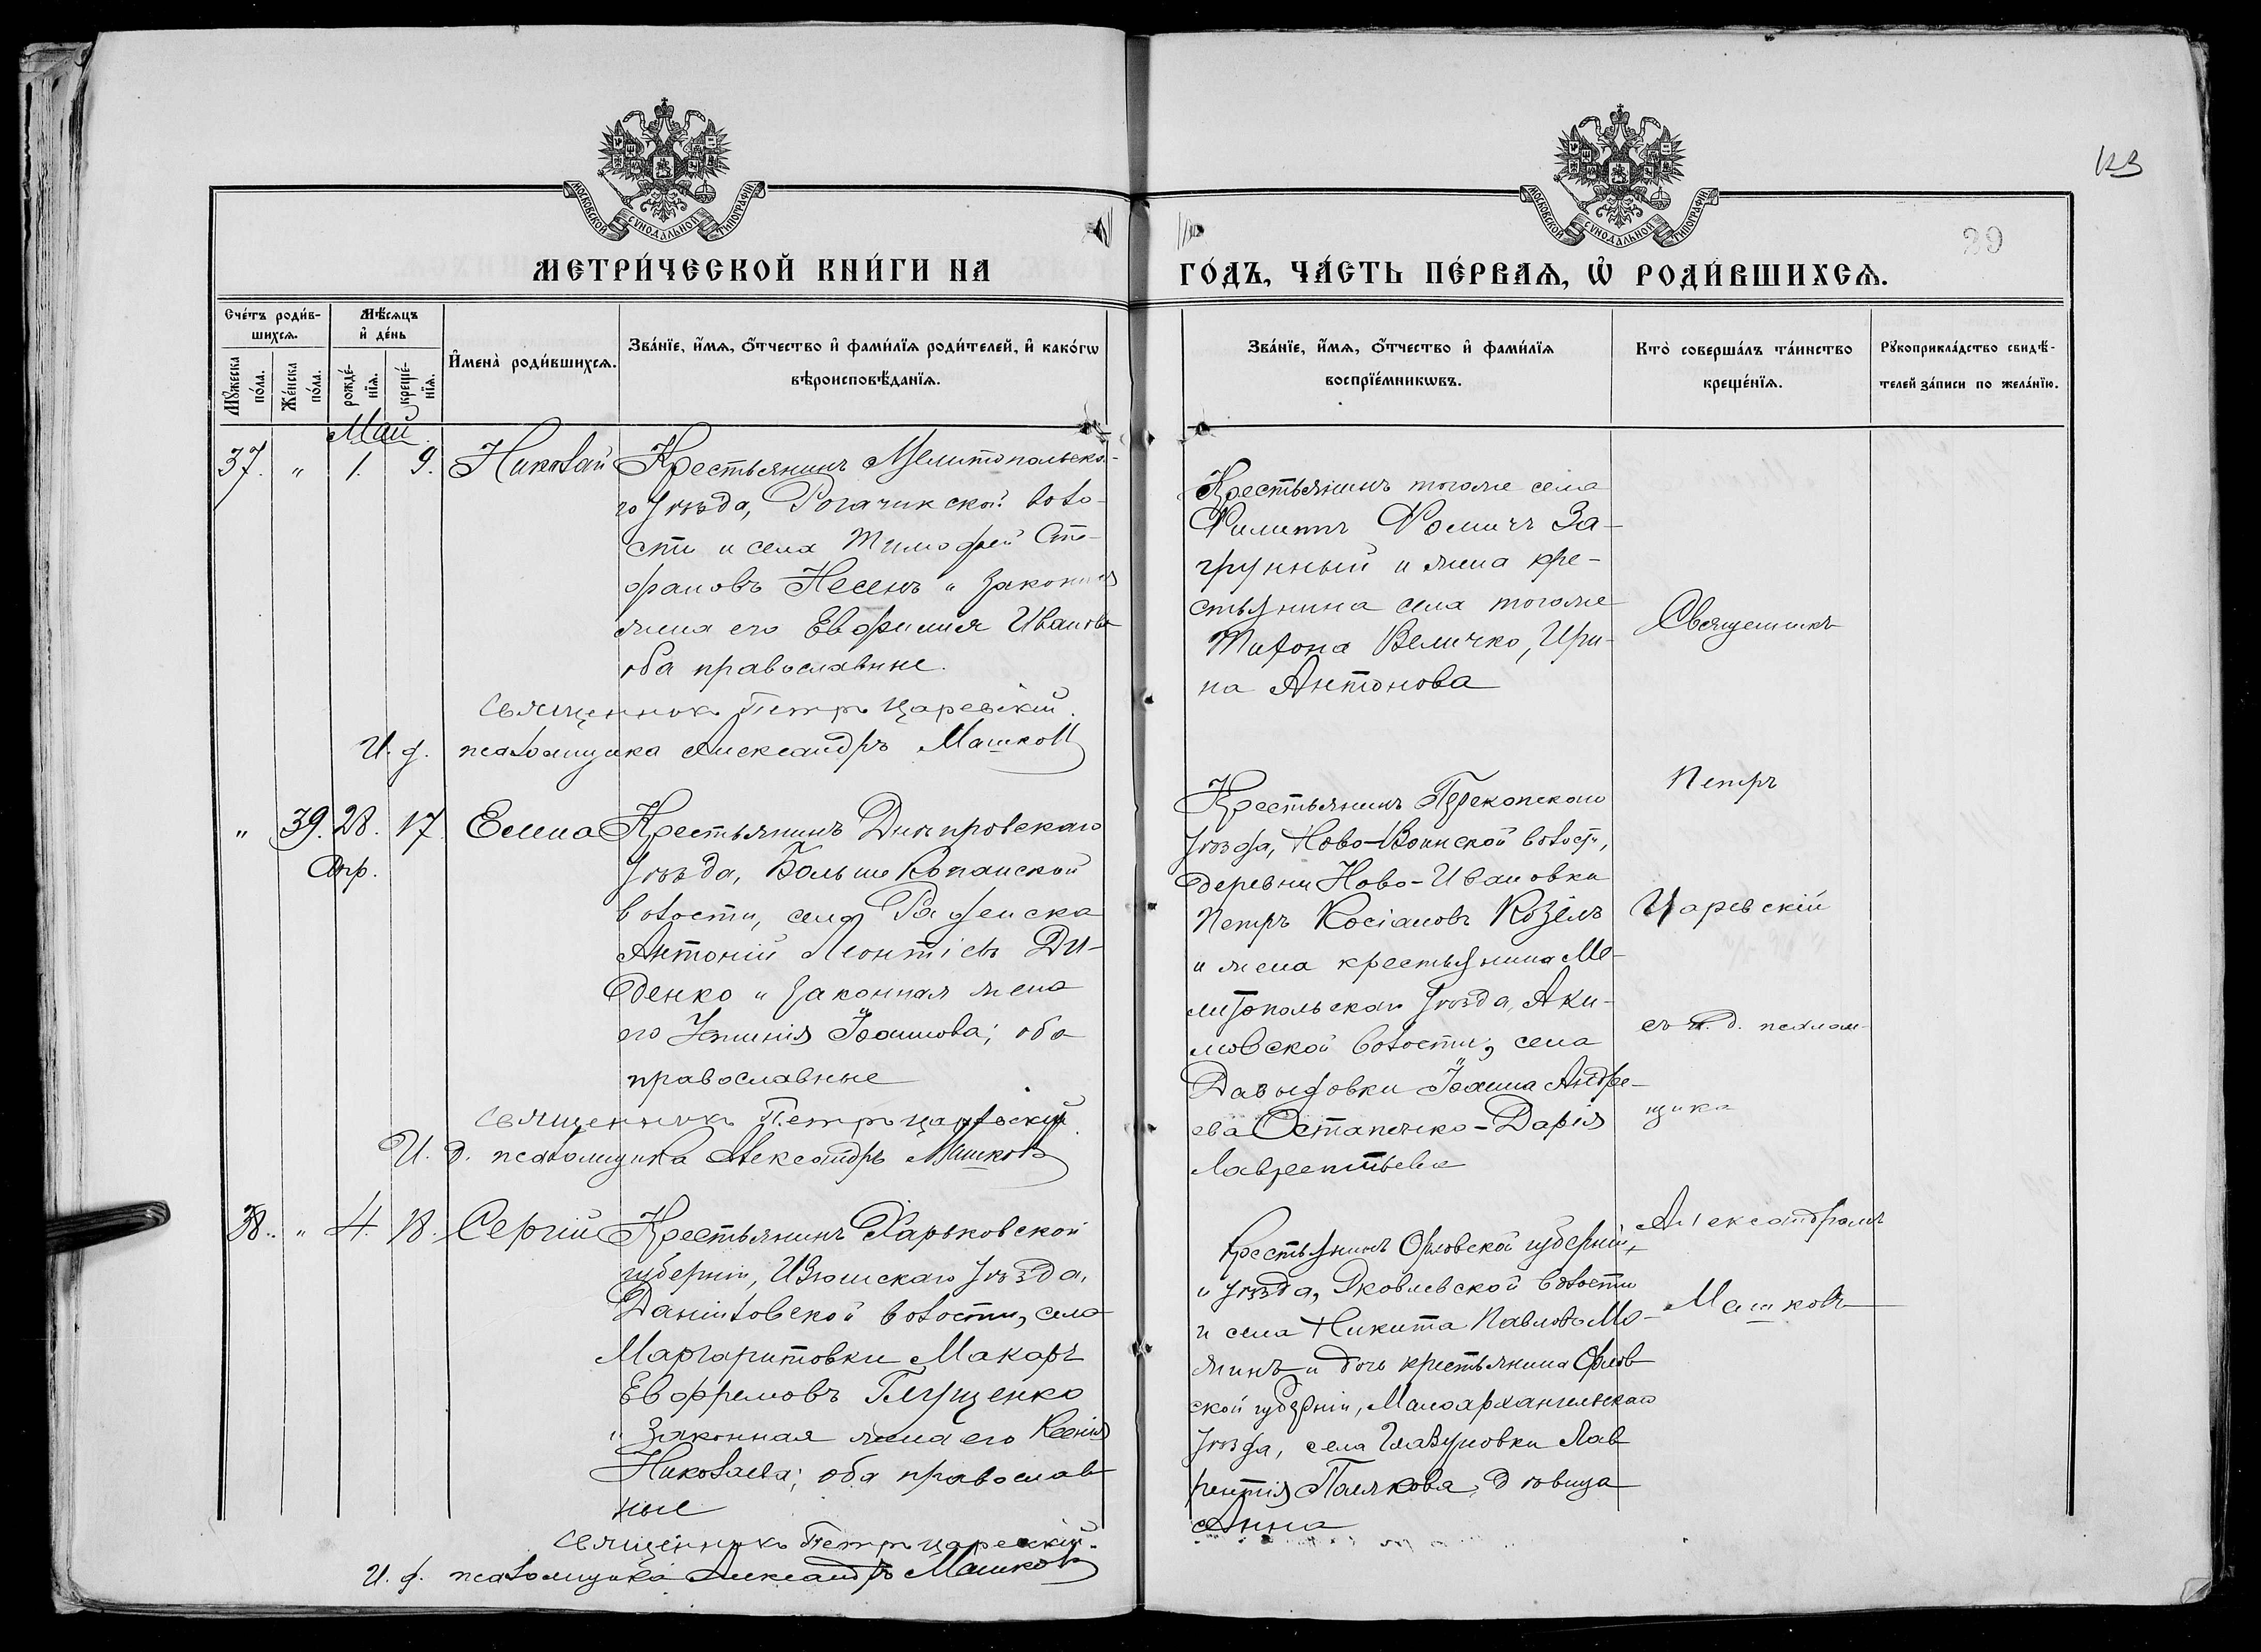 МОСКОВСКОЙ СѴНОДАЛЬНОЙ ТИПОГРАФІИ
МОСКОВСКОЙ СѴНОДАЛЬНОЙ ТИПОГРАФІИ
123
29
МЕТРИ́ЧЕСКОЙ КНИ́ГИ НА
ГО́ДЪ, ЧА́СТЬ ПЕ́РВАѦ, Ѡ҆ РОДИ́ВШИХСѦ.
Сче́тъ роди́в-
шихсѧ.
Мꙋ́жеска по́ла.
Же́нска по́ла.
Мѣ́сѧцъ
и҆ де́нь
рожде́-нїѧ.
креще́-нїѧ.
И҆мена̀ роди́вшихсѧ.
Зва́нїе, и҆́мѧ, ѻ҆́тчество и҆ фами́лїѧ роди́телей, и҆ како́гѡ
вѣроисповѣ́данїѧ.
Зва́нїе, и҆́мѧ, ѻ҆́тчество и҆ фами́лїѧ
воспрїе́мникѡвъ.
Кто̀ соверша́лъ та́инство
креще́нїѧ.
Рꙋкоприкла́дство свидѣ́-
телей за́писи по жела́нїю.
Май
37. " 1. 9. Николай
Крестьянинъ Мелитопольска-
го уѣзда, Рогачикской воло-
сти и села Тимофей Сте-
фановъ Несенъ и законная
жена его Евфимия Иванова
оба православные.
Священникъ Петръ Царевскій.
И. д. псаломщика Александръ Машковъ
Крестьянинъ тогоже села
Филиппъ Фомичъ За-
грунный и жена кре-
стьянина села тогоже
Тихона Величко, Ири-
на Антонова
Священникъ
Петръ
Царевскій
съ и. д. псалом-
щика
Александромъ
Машковъ
" 39. 28. 17. Елена
Апр.
Крестьянинъ Днѣпровскаго
уѣзда, Больше Копанской
волости, села Раденска
Антоній Леонтіевъ Ди-
денко и законная жена
его Іоаннова; оба
православные
Священникъ Петръ Царевскій
И. д. псаломщика Александръ Машковъ
Крестьянинъ Перекопскаго
уѣзда, Ново-Воинской волости,
деревни Ново-Ивановки
Петръ Косіановъ Козелъ
и жена крестьянина Ме-
литопольскаго уѣзда, Аки-
мовской волости, села
Давыдовки Іоанна Андре-
ева Остапенко - Дарія
Лаврентьева
38. " 4. 18. Сергій
Крестьянинъ Харьковской
губерніи, Изюмскаго уѣзда,
Даниловской волости, села
Маргаритовки Макаръ
Евфремовъ Глущенко
и законная жена его Ксенія
Николаева; оба православ
ные
Священникъ Петръ Царевскій.
И. д. псаломщика Александръ Машковъ
Крестьянинъ Орловской губерніи,
и уѣзда, Яковлевской волости
и села Никита Павловъ Мо-
жинъ и дочь крестьянина Орлов
ской губерніи, Малоархангельскаго
уѣзда, села Глазуновки Лав
рентія Полякова, дѣвица
Анна